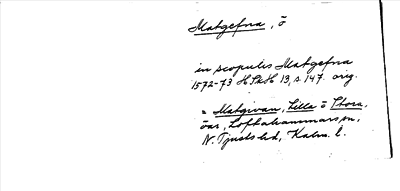 Matgefna, ö
in scopulis Matgefna
1572-73 HSkH 13, s. 147. orig.
= Matgivan, Lilla ö Stora,
öar, Loftahammars sn,
N. Tjusts hd, Kalm. l.